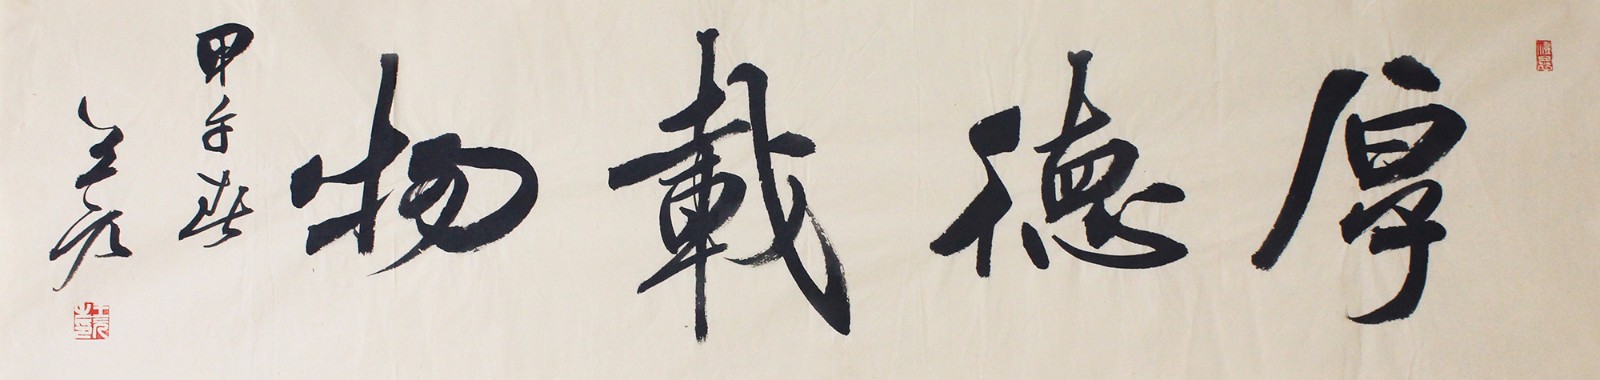 厚德載物
甲午春